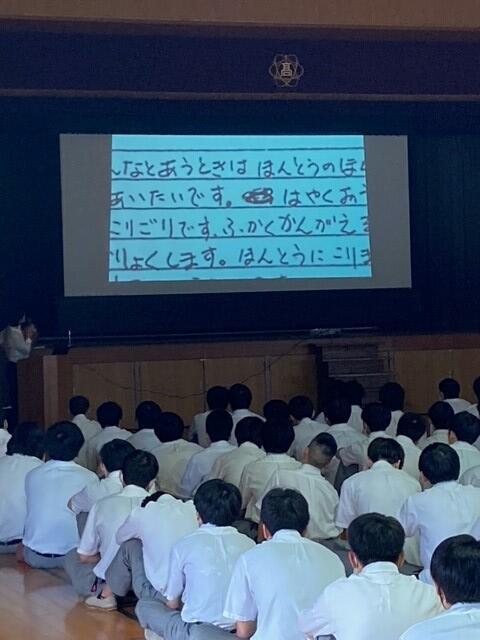 高
んなとあうときは ほんとうのほ
あいたいです。 はやくあ
こりごりです、ふかくかんがえ
りょくします。ほんとうに こりま